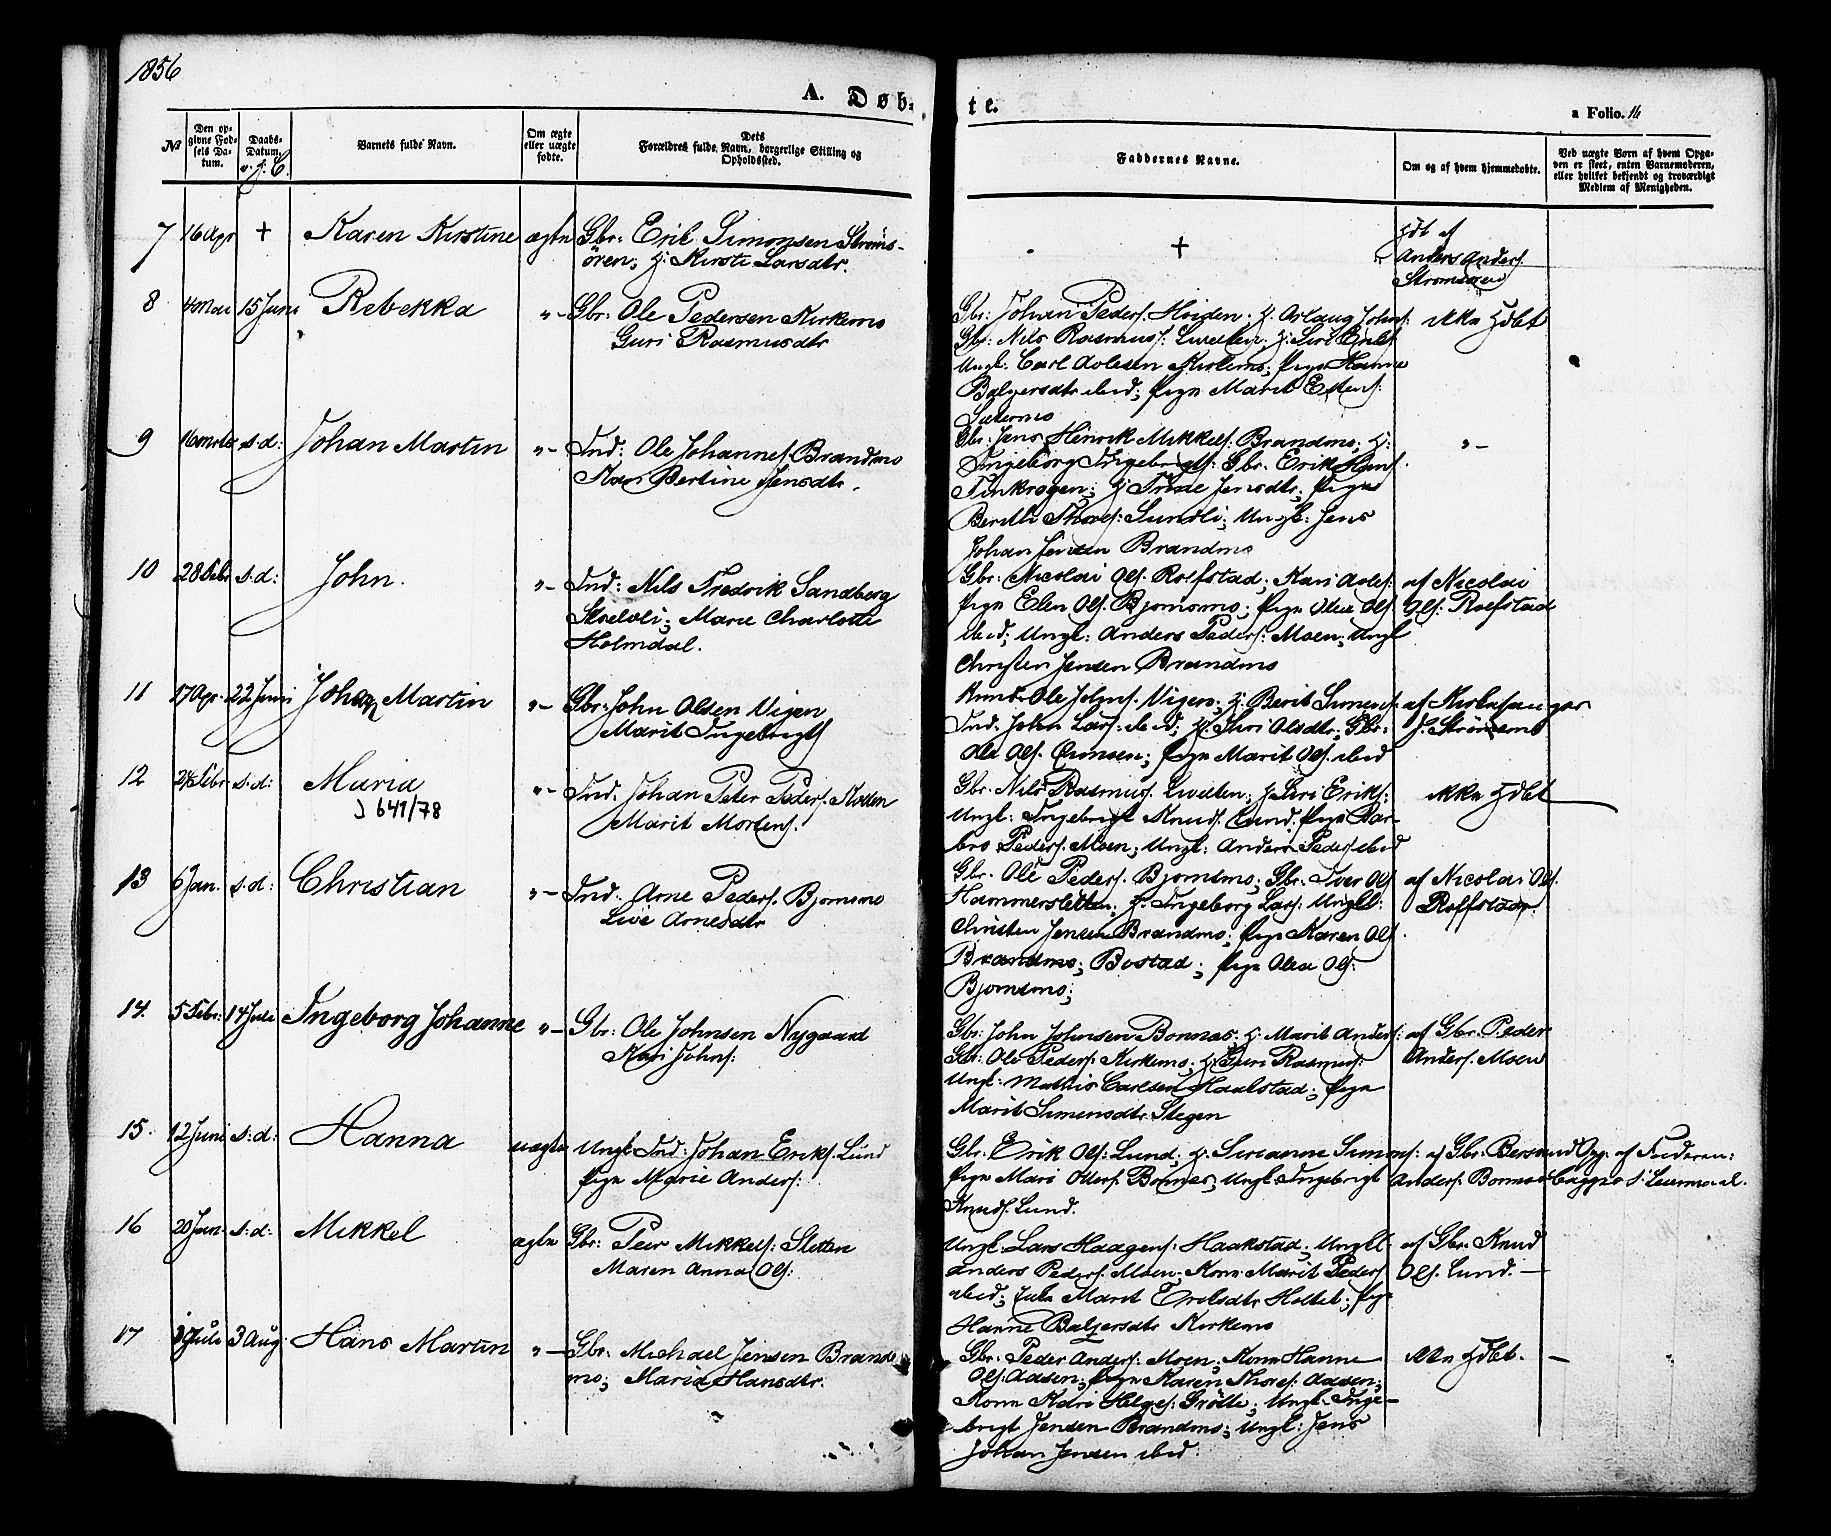 1856
A. Døb-
te.
a Folio. 16
№
Den op-
givne Fød-
sels Da-
tum.
Daabs-
Datum.
Barnets fulde Navn.
Om ægte
eller uægte
fødte.
Dets
Forældres fulde Navn, borgerlige Stilling og
Opholdssted.
Faddernes Navne.
Om og af hvem hjemmedøbte.
Ved uægte Børn af hvem Opga-
ven er skeet, enten Barnemoderen,
eller hvilket bekjendt og troværdigt
Medlem af Menigheden.
7 16 Apr + Karen Kirstine ægte Gbr: Erik Simonsen Strøms-
ören; H: Kirsti Larsdtr.
+
Hdbt af
Anders Anders.
Strømsøren
8 4 Mai 15 Juni Rebekka "- Gbr: Ole Pedersen Kirkemo
Guri Rasmusdtr
Gbr: Johan Peders. Hoiden. H: Aslaug Johns:
Gbr: Nils Rasmus: H: Siri Eriks.
Ungk: Carl Aolesen Kirkemo; Pige Hanne
Balzersdtr ibid; Pige Marit Estens:
ikke Hdbt
9 16 s.d: Johan Martin "- Ind: Ole Johannes. Brandmo
Bertine Jensdtr.
Gbr: Jens Henrik Mikkels. Brandmo; H:
Ingeborg Ingebrigts: Gbr. Erik Hans.
Finkrogen; H: Jensdtr; Pige
Berithe Thores: Sundli; Ungk: Jens
Johan Jensen Brandmo
"-
10 28 Febr s.d: John. "- Ind: Nils Fredrik Sandberg
Marie Charlotte
Holmdal.
Gbr: Nicolai Ols. Rolfstad; Kari Aoles:
Pige Elen Ols. Bjornsmo; Pige Olea Ols
ibid; Ungk: Anders Peders: Moen; Ungk
Christen Jensen Brandmo
af Nicolai
Ols. Rolfstad
11 17 Apr. 22 Juni Johan Martin "- Gbr: John Olsen Vigen
Marit Ingebrigts
Ole Johns. Vigen; H: Berit Simens:
Ind: John Lars: ibid; H: Guri Olsdtr; Gbr:
Ole Ols. Pige Marit Ols. ibid
af Kirkesanger
J. Strömsmo
12 24 Febr s.d: Maria "- Ind: Johan Peter Peders. Molien
J 641/78
Marit Mortens.
Gbr. Nils Rasmus. H: Siri Eriks:
Ungk: Ingebrigt Knuds. Lund. Pige Bar-
bro Peders. Moen; Ungk: Anders Peders ibid
ikke Hdbt
13 6 Jan. s.d: Christian "- Ind: Arne Peders. Bjornsmo
Live Arnesdtr
Gbr. Ole Peders. Bjornsmo; Gbr: Iver Ols
Hammersletten; H: Ingeborg Lars: Ungk:
Christen Jensen Brandmo; Pige Karen Ols
Brandmo; Bostad; Pige Olea Ols:
Bjornsmo;
af Nicolai Ols.
Rolfstad.
14. 5 Febr: 14 Juli Ingeborg Johanne "- Gbr: Ole Johnsen Nygaard
Kari Johns:
Gbr: John Johnsen Bonnas; H: Marit Anders:
Gbr: Ole Peders. Kirkemo; H: Guri Rasmus:
Ungk: Mathis Carlsen Haakstad; Pige
Marit Simensdtr Stegen
af Gbr. Peder
Anders. Moen
15. 12 Juni s.d: Hanna uægte Ungk: Ind: Johan Eriks. Lund
Pige Marie Anders:
Gbr. Erik Ols. Lund; H: Serianne Simons:
Pige Mari Bonnes; Ungk: Ingebrigt
Knuds. Lund.
af Gbr: Bersvend
Anders. Bonnes
Opg. af Faderen:
Begges 1: Leiermaal.
16 20 Jun. s.d: Mikkel ægte Gbr: Peter Mikkels: Sletten
Maren Anna Ols:
Ungk: Lars Haagens: Haakstad; Ungk:
Anders Peders. Moen; Kone Marit Peders
ibid; Enke Marit Eriksdtr Holtet; Pige
Hanne Balzersdtr Kirkemo
af Gbr. Knud
Ols. Lund. —
17 Juli 3 Aug. Hans Martin "- Gbr: Michael Jensen Brand-
mo; Maria Hansdtr.
Gbr: Peder Anders. Moen; Kone Hanne
Ols. Aasen; Pige Karen Thores. Aasen;
Kone Kari Helges: Grötte; Ungk. Inge-
brigt Jensen Brandmo; Ungk: Jens
Johan Jensen ibid:
ikke Hdbt. —